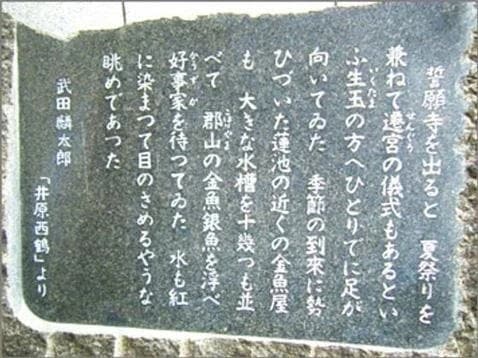 誓願寺を出ると　夏祭りを
兼ねて遷宮の儀式もあるとい
せんぐう
ふ生玉の方へひとりでに足が
いくたま
向いてゐた　季節の到来に勢
ひづいた蓮池の近くの金魚屋
も　大きな水槽を十幾つも並
べて　郡山の金魚銀魚を浮べ
こほりやま
好事家を待つてゐた　水も紅
かうずか
に染まつて目のさめるやうな
眺めであつた
武田麟太郎
「井原西鶴」より